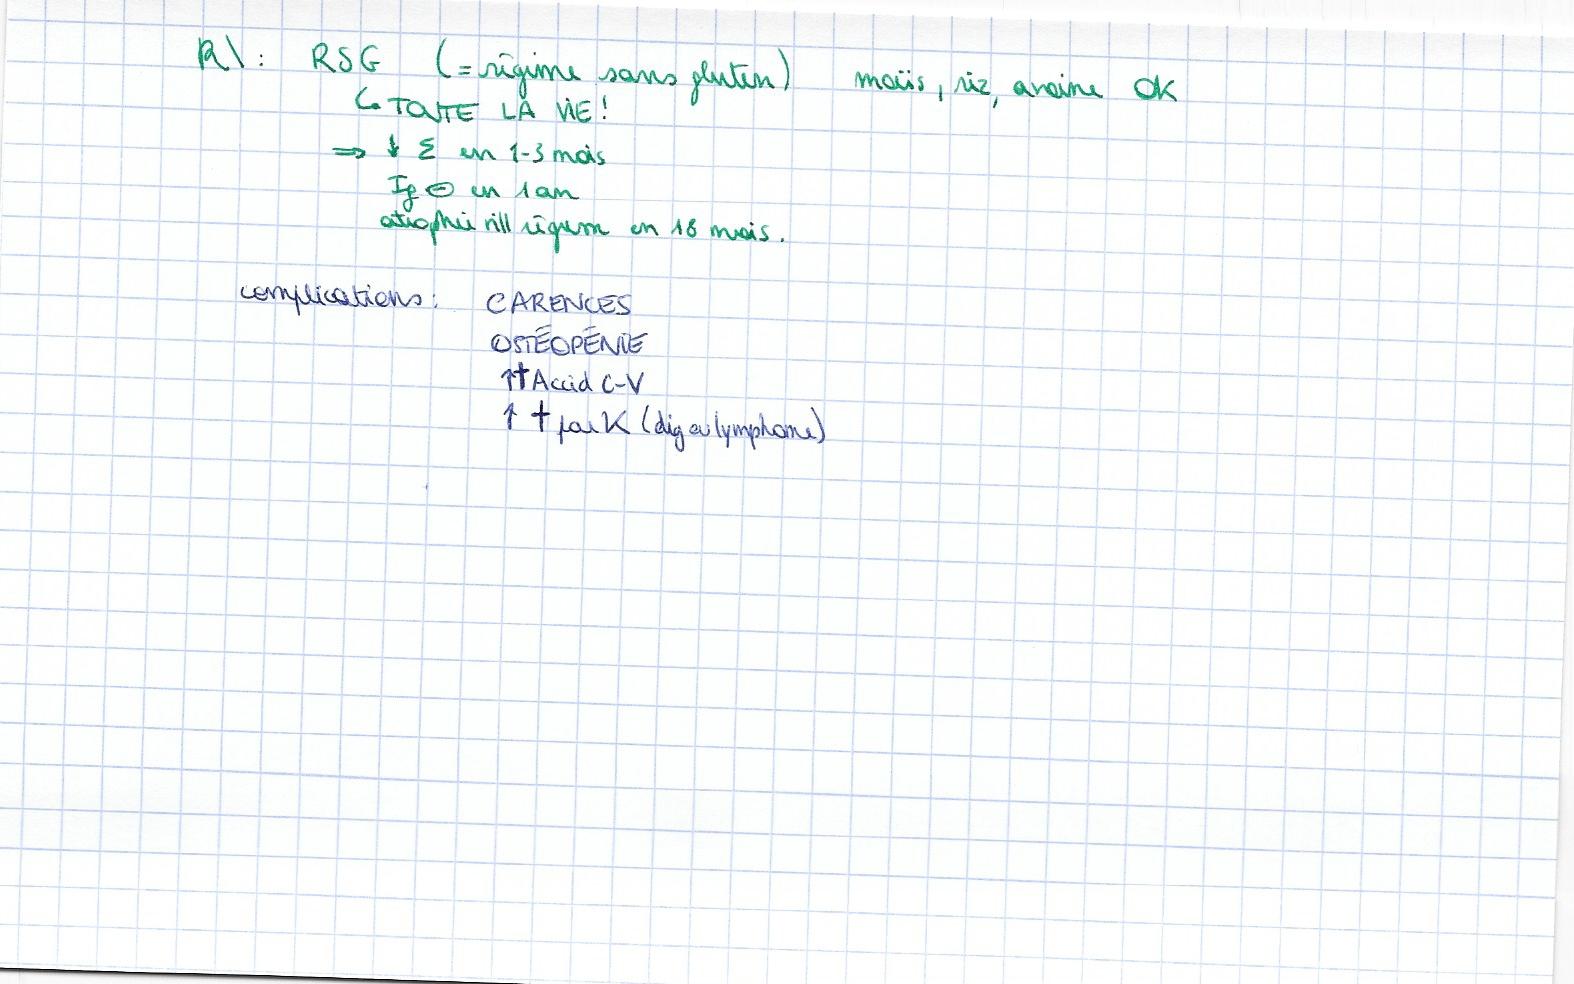 R\ : RSG (= régime sans gluten) maïs, riz, avoine OK
↳ TOUTE LA VIE !
⇒ ↓ Σ en 1-3 mois
Ig ⊖ en 1 an
atrophie vill régresse en 18 mois.
complications : CARENCES
OSTÉOPÉNIE
↑† Accid C-V
↑ † par K (dig ou lymphome)